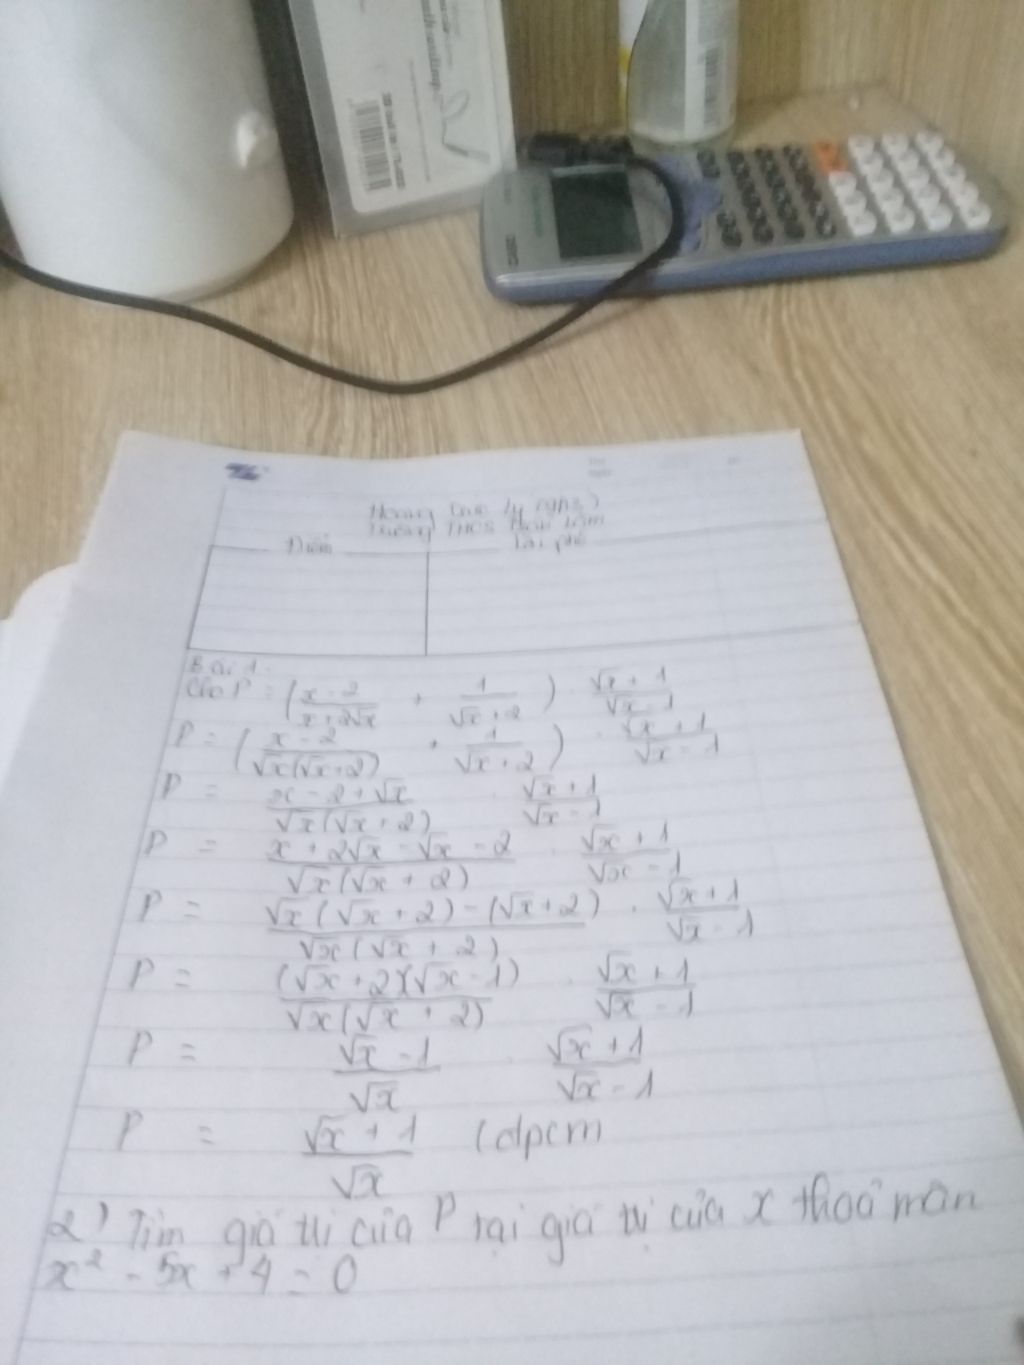 Điểm
Lời phê
Bài 1:
Cho P = (x - 2 / x + 2√x + 1 / √x + 2) . √x + 1 / √x - 1
P = (x - 2 / √x(√x + 2) + 1 / √x + 2) . √x + 1 / √x - 1
P = x - 2 + √x / √x(√x + 2) . √x + 1 / √x - 1
P = x + 2√x - √x - 2 / √x(√x + 2) . √x + 1 / √x - 1
P = √x(√x + 2) - (√x + 2) / √x(√x + 2) . √x + 1 / √x - 1
P = (√x + 2)(√x - 1) / √x(√x + 2) . √x + 1 / √x - 1
P = √x - 1 / √x . √x + 1 / √x - 1
P = √x + 1 / √x (đpcm
2) Tìm giá trị của P tại giá trị của x thoả mãn
x² - 5x + 4 = 0